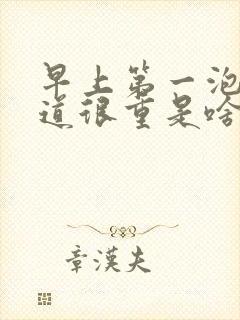 早上第一泡
道很重是啥
章漢夫